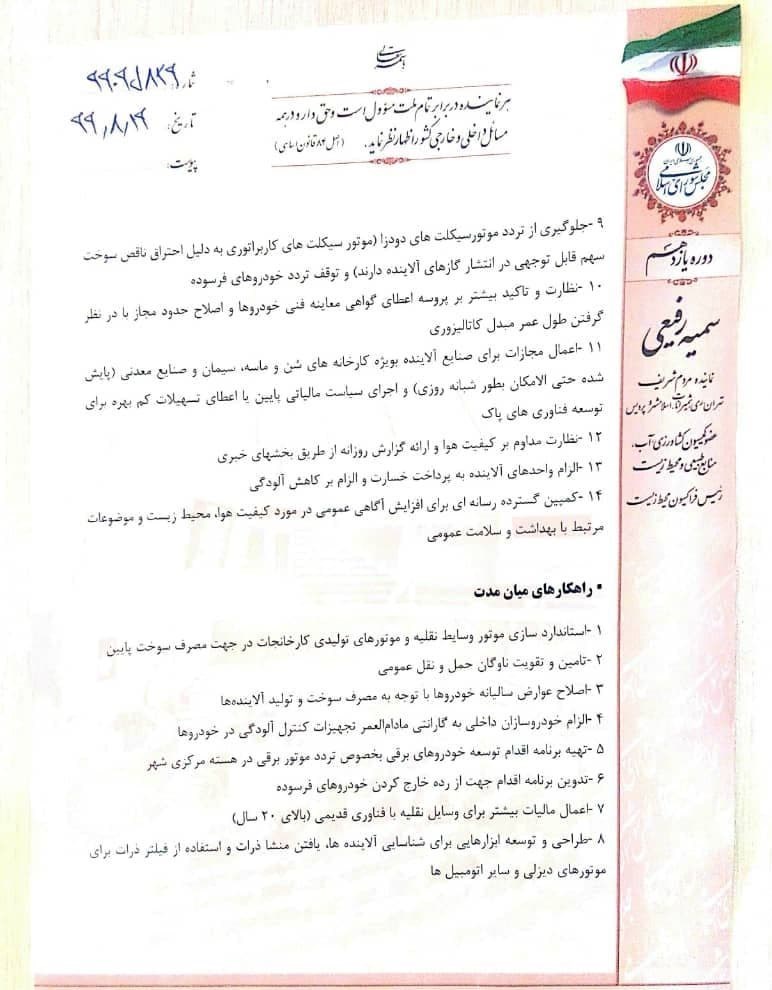 باسمه تعالی
هر نماینده در برابر تمام ملت مسؤول است و حق دارد در همه
مسائل داخلی و خارجی کشور اظهار نظر نماید. (اصل ۸۴ قانون اساسی)
شماره:
تاریخ: ۹۹٫۸٫۱۹
پیوست:
مجلس شورای اسلامی
دوره یازدهم
سمیه رفیعی
نماینده مردم شریف
تهران، ری، شمیرانات، اسلامشهر و پردیس
عضو کمیسیون کشاورزی، آب،
منابع طبیعی و محیط زیست
رئیس فراکسیون محیط زیست
۹ -جلوگیری از تردد موتورسیکلت های دودزا (موتور سیکلت های کاربراتوری به دلیل احتراق ناقص سوخت
سهم قابل توجهی در انتشار گازهای آلاینده دارند) و توقف تردد خودروهای فرسوده
۱۰ -نظارت و تاکید بیشتر بر پروسه اعطای گواهی معاینه فنی خودروها و اصلاح حدود مجاز با در نظر
گرفتن طول عمر مبدل کاتالیزوری
۱۱ -اعمال مجازات برای صنایع آلاینده بویژه کارخانه های شن و ماسه، سیمان و صنایع معدنی (پایش
شده حتی الامکان بطور شبانه روزی) و اجرای سیاست مالیاتی پایین یا اعطای تسهیلات کم بهره برای
توسعه فناوری های پاک
۱۲ -نظارت مداوم بر کیفیت هوا و ارائه گزارش روزانه از طریق بخشهای خبری
۱۳ -الزام واحدهای آلاینده به پرداخت خسارت و الزام بر کاهش آلودگی
۱۴ -کمپین گسترده رسانه ای برای افزایش آگاهی عمومی در مورد کیفیت هوا، محیط زیست و موضوعات
مرتبط با بهداشت و سلامت عمومی
▪ راهکارهای میان مدت
۱ -استاندارد سازی موتور وسایط نقلیه و موتورهای تولیدی کارخانجات در جهت مصرف سوخت پایین
۲ -تامین و تقویت ناوگان حمل و نقل عمومی
۳ -اصلاح عوارض سالیانه خودروها با توجه به مصرف سوخت و تولید آلاینده‌ها
۴ -الزام خودروسازان داخلی به گارانتی مادام‌العمر تجهیزات کنترل آلودگی در خودروها
۵ -تهیه برنامه اقدام توسعه خودروهای برقی بخصوص تردد موتور برقی در هسته مرکزی شهر
۶ -تدوین برنامه اقدام جهت از رده خارج کردن خودروهای فرسوده
۷ -اعمال مالیات بیشتر برای وسایل نقلیه با فناوری قدیمی (بالای ۲۰ سال)
۸ -طراحی و توسعه ابزارهایی برای شناسایی آلاینده ها، یافتن منشا ذرات و استفاده از فیلتر ذرات برای
موتورهای دیزلی و سایر اتومبیل ها